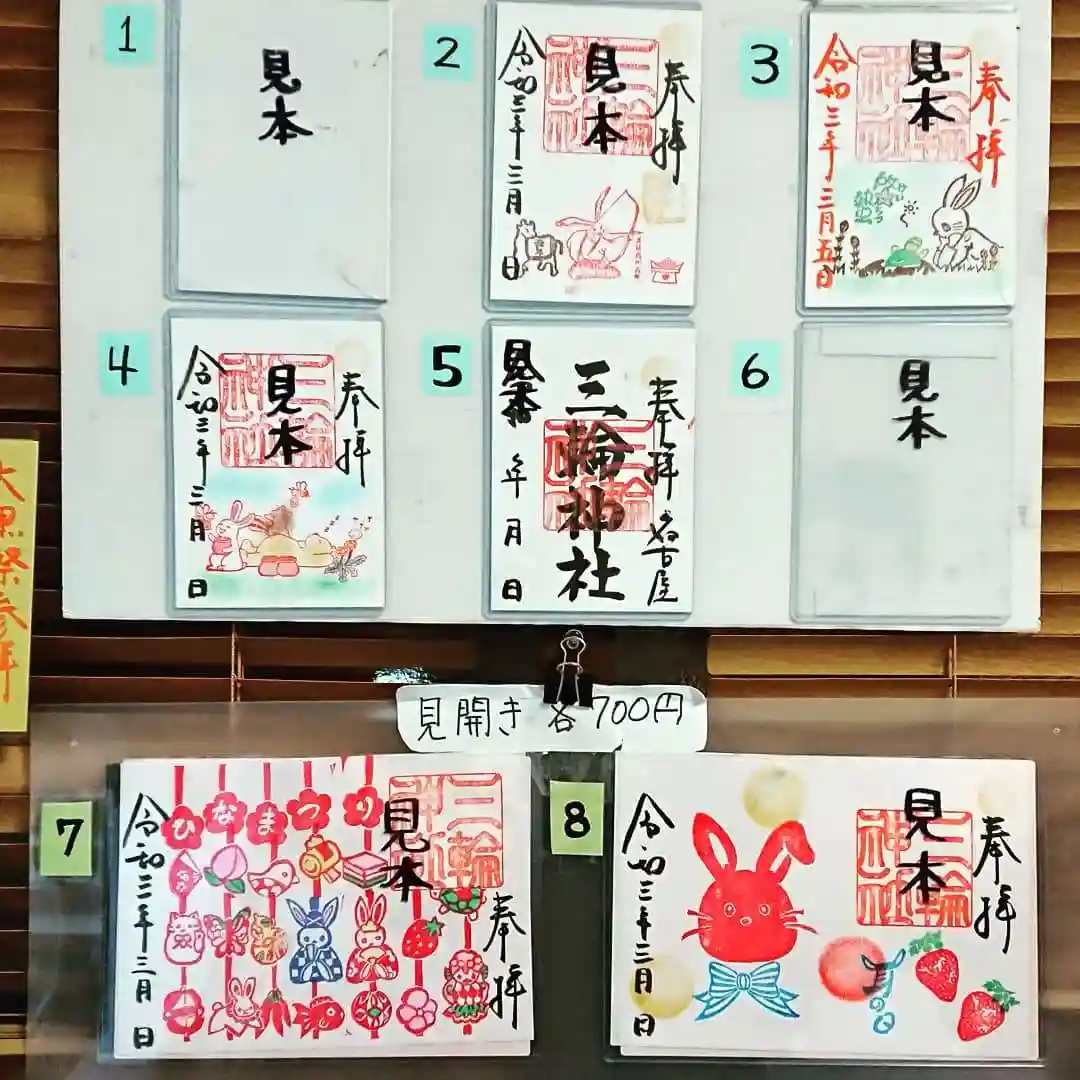 1
見本
2
奉拝
三輪神社
見本
令和三年三月 日
3
奉拝
三輪神社
見本
令和三年三月五日
4
奉拝
三輪神社
見本
令和三年三月 日
5
奉拝 名古屋
三輪神社
三輪神社
見本
年 月 日
6
見本
大黒祭参拝
見開き 各700円
7
奉拝
三輪神社
見本
ひなまつり
令和三年三月 日
8
奉拝
三輪神社
見本
の日
令和三年三月 日